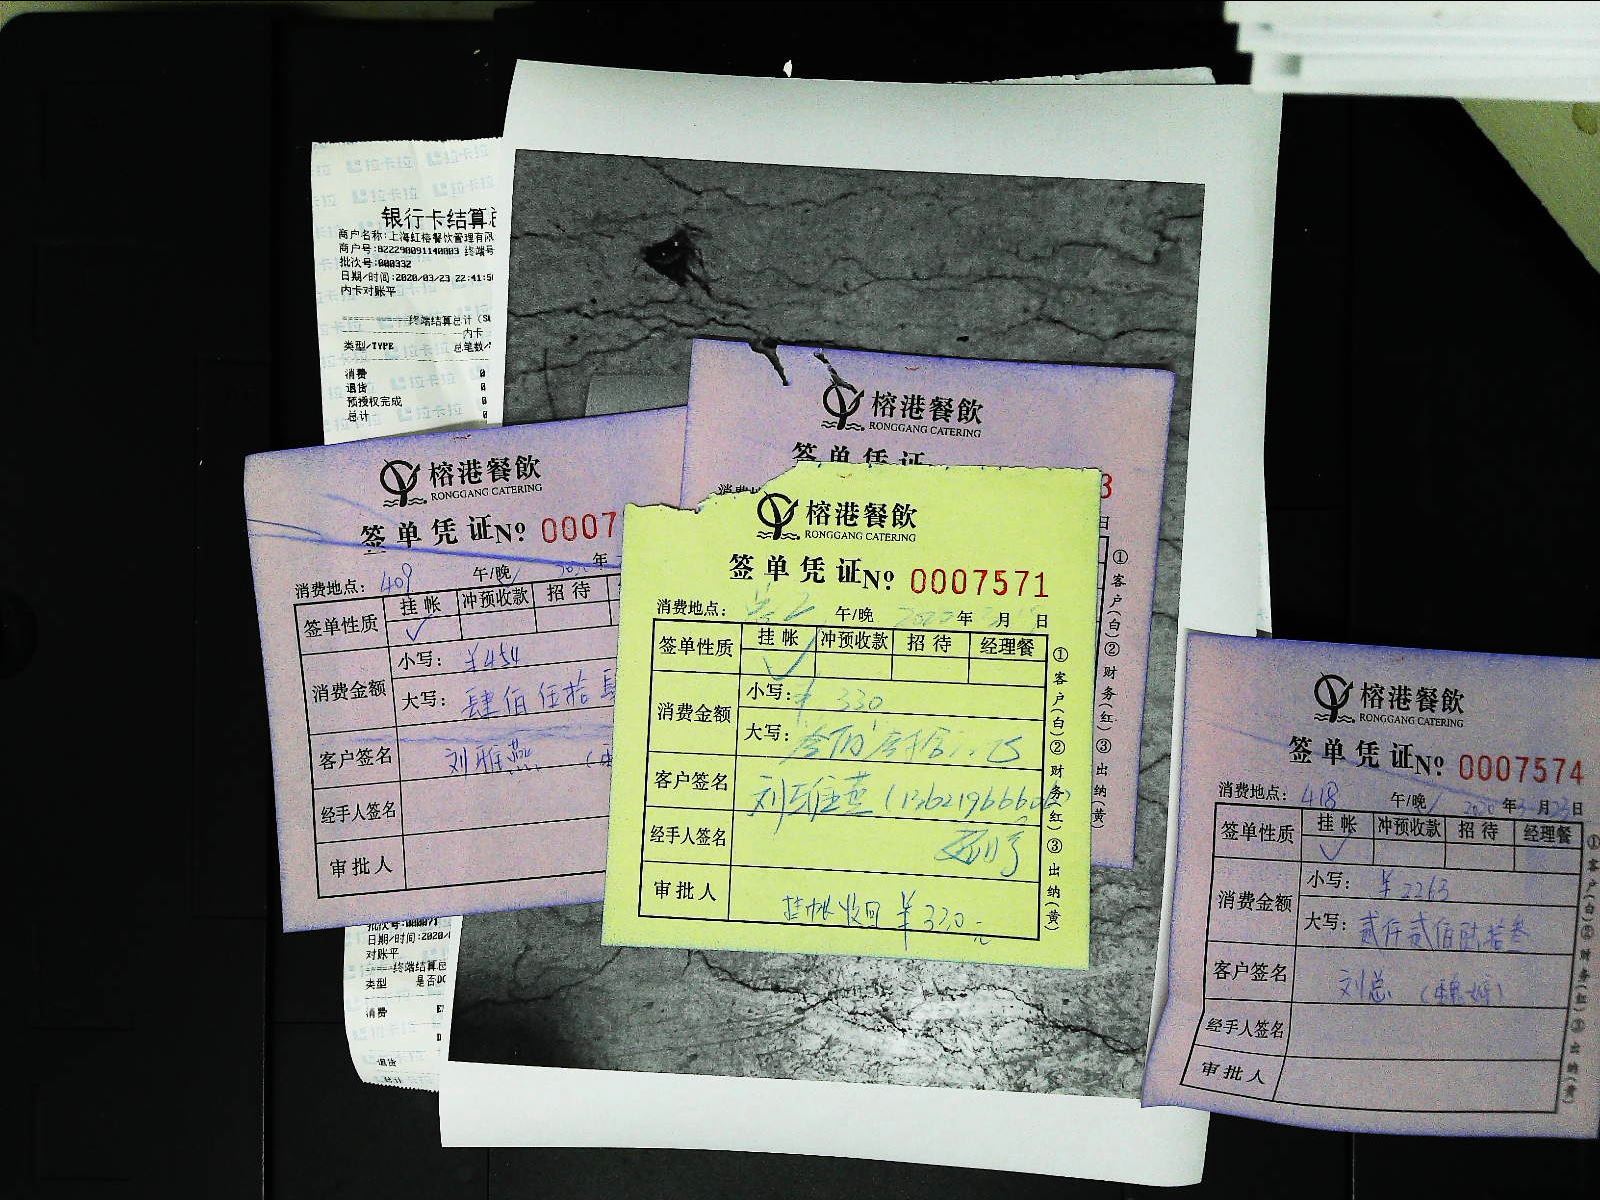 银行卡结算总
商户名称:上海虹榕餐饮管理有限
商户号:822290091140003 终端号
批次号:000332
日期/时间:2020/03/23 22:41:5
内卡对账平
终端结算总计
内卡
类型/TYPE 总笔数/
消费 0
退货 0
预授权完成 0
总计 0
批次号:000071
日期/时间:2020/
对账平
终端结算总
类型 是否DC
消费
退货
总计
榕港餐飲
RONGGANG CATERING
签单凭证№ 0007
消费地点: 409 午/晚 年
签单性质 挂帐 冲预收款 招待
消费金额 小写: ¥454
大写: 肆佰伍拾肆
客户签名 刘雅燕
经手人签名
审批人
榕港餐飲
RONGGANG CATERING
签单凭证
3
日
①客户(白)②财务(红)③出纳(黄)
榕港餐飲
RONGGANG CATERING
签单凭证№ 0007571
消费地点: 午/晚 年 月 日
签单性质 挂帐 冲预收款 招待 经理餐
消费金额 小写: ¥330
大写: 叁佰叁拾元
客户签名 刘雅燕
经手人签名
审批人 挂帐收回¥330元
①客户(白)②财务(红)③出纳(黄)
榕港餐飲
RONGGANG CATERING
签单凭证№ 0007574
消费地点: 418 午/晚 2020年3月23日
签单性质 挂帐 冲预收款 招待 经理餐
消费金额 小写: ¥2263
大写: 贰仟贰佰陆拾叁
客户签名 刘总
经手人签名
审批人
①客户(白)②财务(红)③出纳(黄)